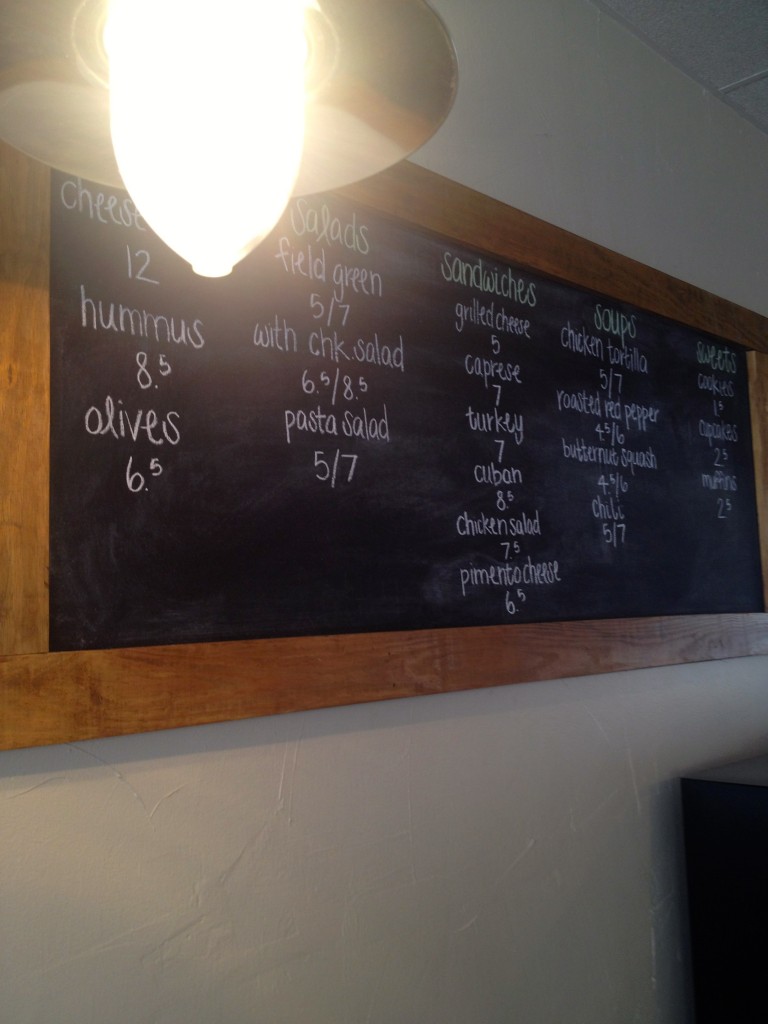 cheese
12
hummus
8.5
olives
6.5
salads
field green
5/7
with chk. salad
6.5/8.5
pasta salad
5/7
sandwiches
grilled cheese
5
caprese
7
turkey
7
cuban
8.5
chicken salad
7.5
pimento cheese
6.5
soups
chicken tortilla
5/7
roasted red pepper
4.5/6
butternut squash
4.5/6
chili
5/7
sweets
cookies
1.5
cupcakes
2.5
muffins
2.5